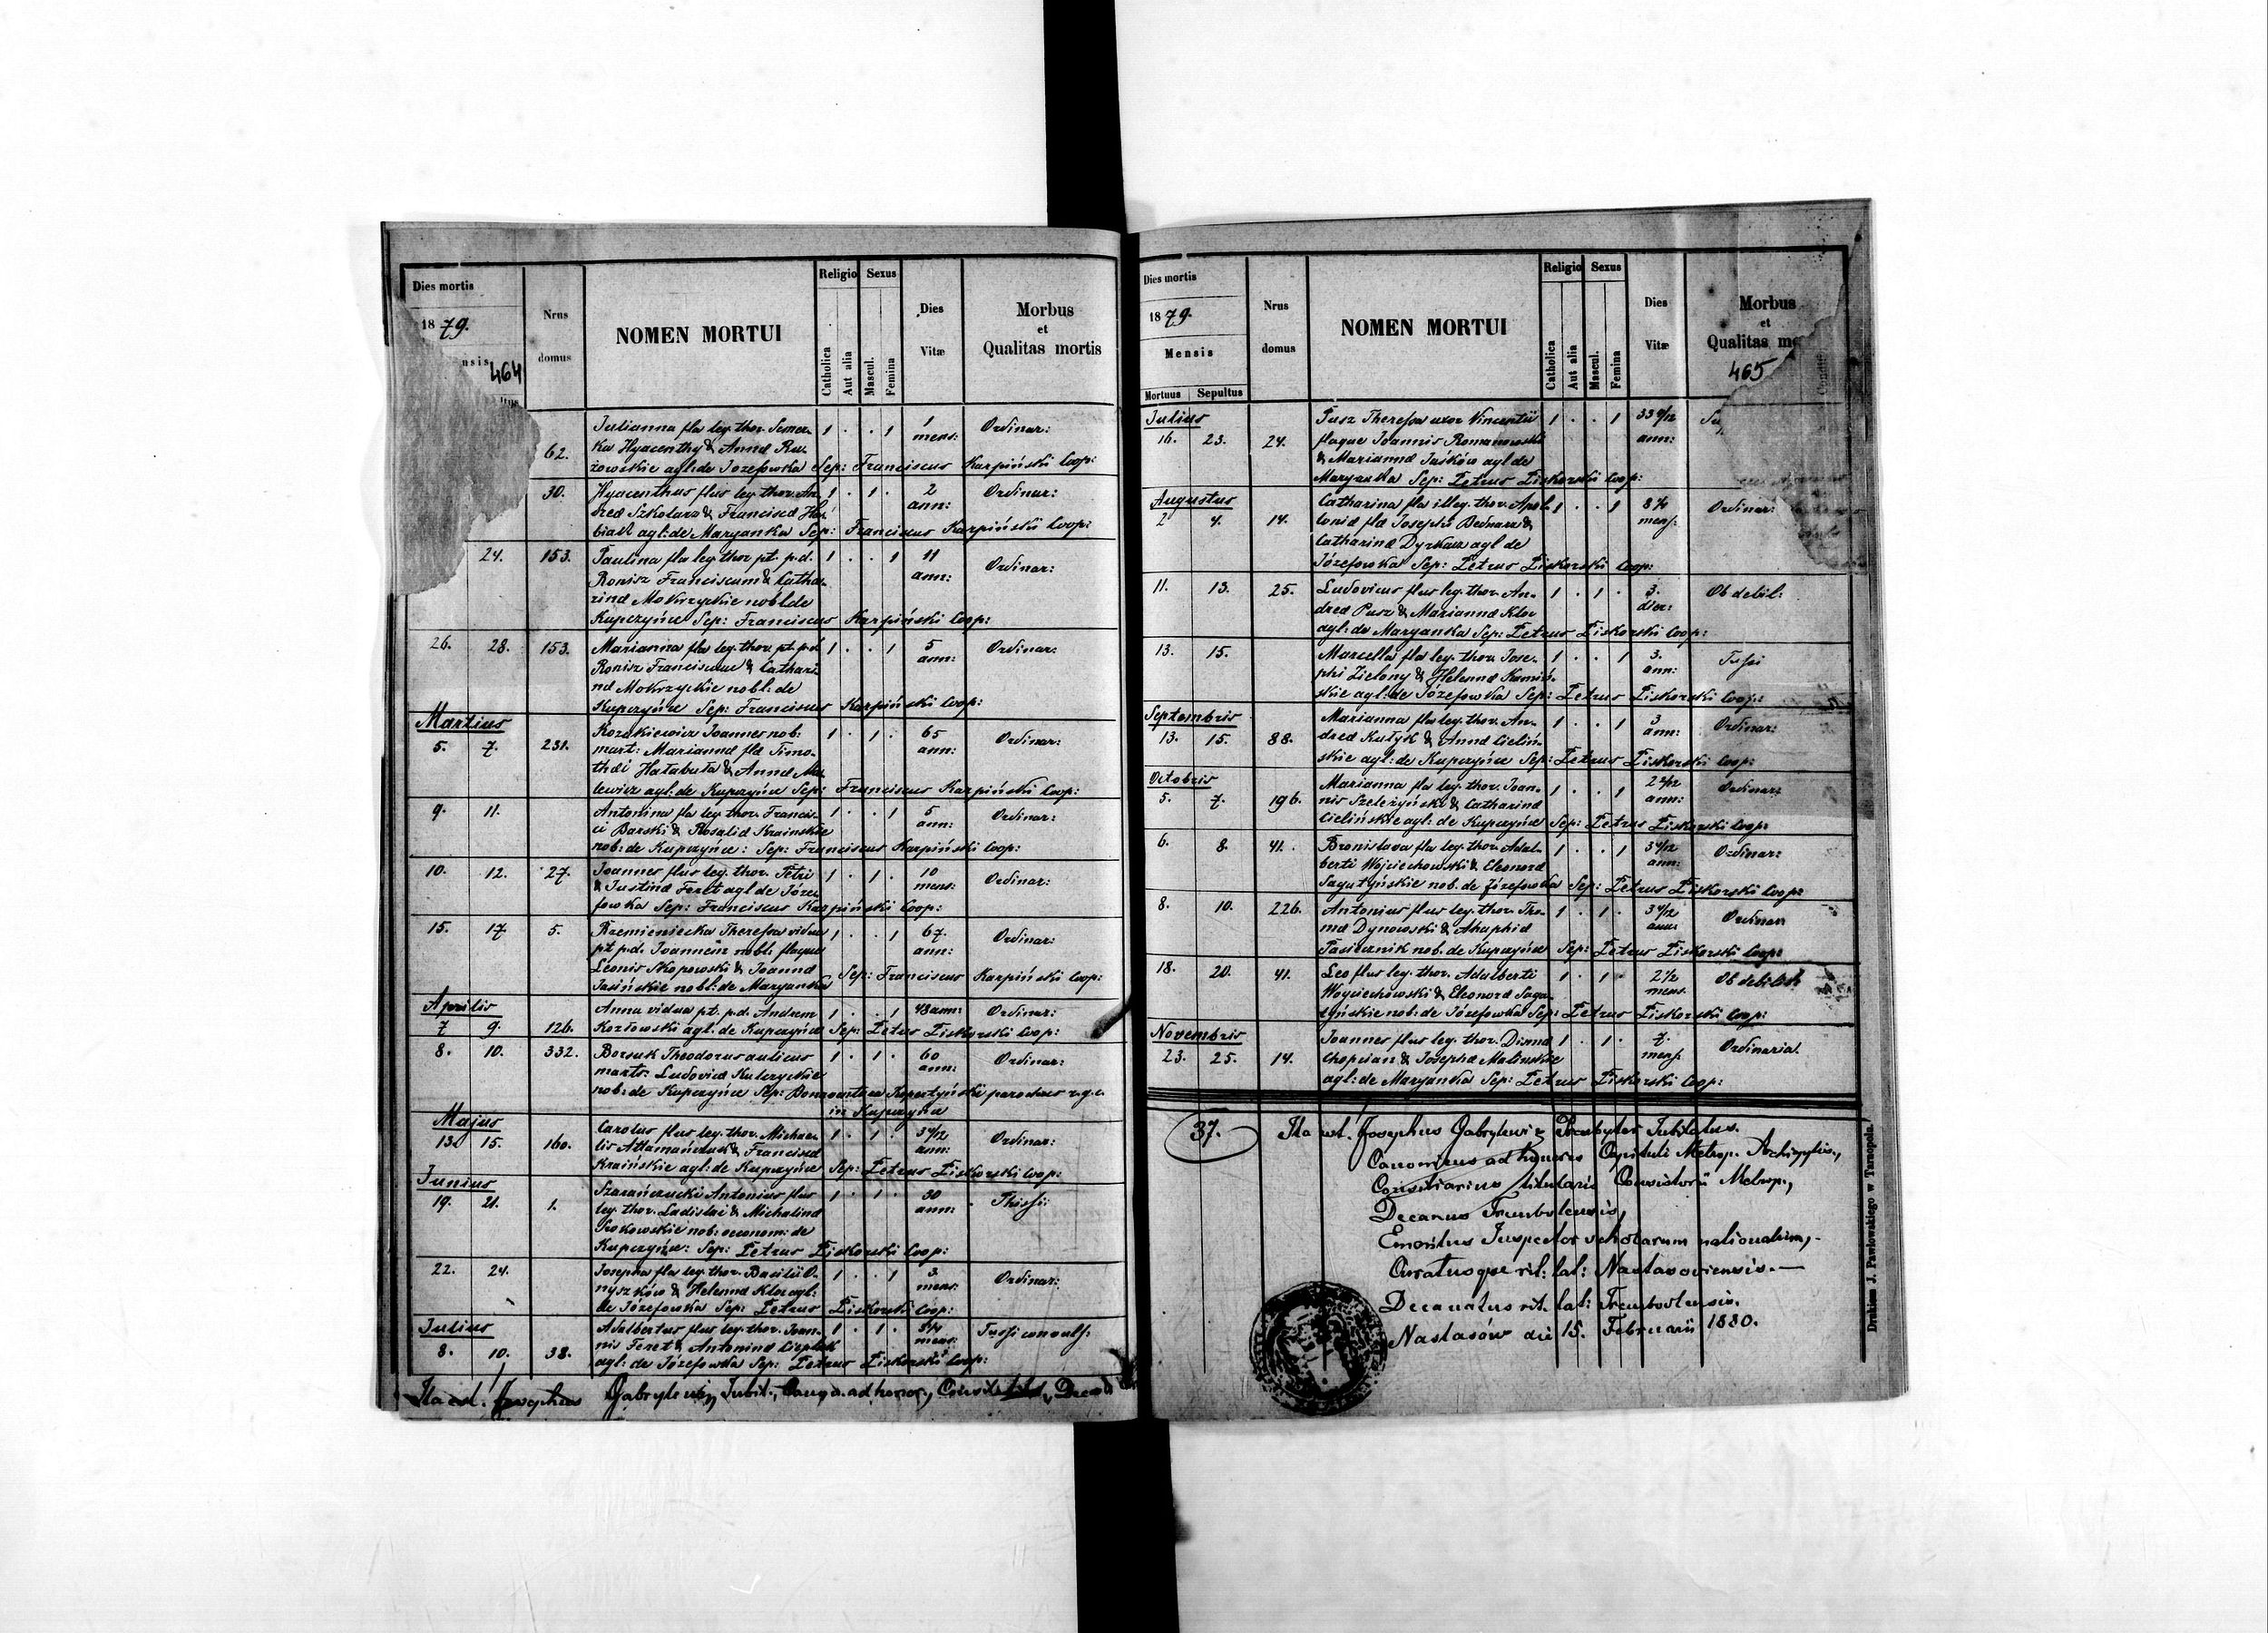 Dies mortis
1879.
nsis
464
ltus
Nrus
domus
NOMEN MORTUI
Religio
Catholica
Aut alia
Sexus
Mascul.
Femina
Dies
Vitæ
Morbus
et
Qualitas mortis
62.
Julianna fla leg. thor.
ka Hyacenthy & Anna
żowskie agl: de Jozefowka Sep: Franciscus Karpiński Coop:
1 . . 1
1
mens:
Ordinar:
30.
Hyacenthus flus leg. thor. An.
dreæ Szkolarz & Francisca
agl: de Maryanka Sep: Franciscus Karpiński Coop:
1 . 1 .
2
ann:
Ordinar:
24. 153.
Paulina fla leg. thor. pt. p.d.
Ronisz Franciscum & Catha-
rina Mokrzyckie nobl. de
Kupczyńce Sep: Franciscus Karpiński Coop:
1 . . 1
11
ann:
Ordinar:
26. 28. 153.
Marianna fla leg. thor. pt. p.d.
Ronisz Franciscum & Cathari-
na Mokrzyckie nobl. de
Kupczyńce Sep: Franciscus Karpiński Coop:
1 . . 1
5
ann:
Ordinar:
Martius
5. 7. 231.
Kozakiewicz Joannes nob:
marit: Marianna fla Timo-
thei Hałabuta & Anna
lewicz agl: de Kupczyńce Sep: Franciscus Karpiński Coop:
1 . 1 .
65
ann:
Ordinar:
9. 11.
Antonina fla leg. thor. Francis-
ci Barski & Rosalia Krainskie
nob: de Kupczyńce: Sep: Franciscus Karpiński Coop:
1 . . 1
5
ann:
Ordinar:
10. 12. 27.
Joannes flus leg. thor. Petri
& Justina Feret agl de Józe-
fowka Sep: Franciscus Karpiński Coop:
1 . 1 .
10
mens:
Ordinar:
15. 17 5.
Rzemieniecka Theresa vidua
pt p.d. Joannem nobl. flaque
Leonis Skopowski & Joanna
Jasińskie nobl: de Maryanka Sep: Franciscus Karpiński Coop:
1 . . 1
67.
ann:
Ordinar:
Aprilis
7 9. 126.
Anna vidua pt. p.d. Andream
Kozłowski agl: de Kupczyńce Sep: Petrus Piskorski Coop:
1 . . 1
48 ann:
Ordinar:
8. 10. 332.
Borsuk Theodorus aulicus
marit: Ludovica Kulczyckie
nob: de Kupczyńce Sep: parochus r.g.c.
in Kupczyńce
1 . 1 .
60
ann:
Ordinar:
Majus
13. 15. 160.
Carolus flus leg. thor. Michae-
lis Attamańczuk & Francisca
Kraińskie agl: de Kupczyńce Sep: Petrus Piskorski Coop:
1 . 1 .
ann:
Ordinar:
Junius
19. 21. 1.
Szarańczucki Antonius flus
leg. thor. Ladislai & Michalina
nob: oeconom: de
Kupczyńce: Sep: Petrus Piskorski Coop:
1 . 1 .
30
ann:
22. 24.
Josepha fla leg. thor. Basilii O-
nyszków & Helenna Kloz agl:
de Józefowka Sep: Petrus Piskorski Coop:
1 . . 1
3.
mens:
Ordinar:
Julius
8. 10. 38.
Adalbertus flus leg. thor. Joan-
nis Feret & Antonina
agl: de Józefowka Sep: Petrus Piskorski Coop:
1 . 1 .
mens:
Tussi convuls:
Ita est. Josephus Gabrylewicz Jubil., ad honor.,
Dies mortis
1879.
Mensis
Mortuus
Sepultus
Nrus
domus
NOMEN MORTUI
Religio
Catholica
Aut alia
Sexus
Mascul.
Femina
Dies
Vitæ
Morbus
et
Qualitas mo
465
Julius
16. 23. 24.
Pusz Theresa uxor Vincentii
flaque Joannis Romanowski
& Marianna Jaśków agl de
Maryanka Sep: Petrus Piskorski Coop:
1 . . 1
33 9/12
ann:
Augustus
2 4. 14.
Catharina fla illeg. thor. Apol-
lonia fla Josephi Bednarz &
Catharina Dyrkacz agl de
Józefowka Sep: Petrus Piskorski Coop:
1 . . 1
mens:
Ordinar:
11. 13. 25.
Ludovicus flus leg. thor. An-
dreæ Pusz & Marianna Kloz
agl: de Maryanka Sep: Petrus Piskorski Coop:
1 . 1 .
3.
dier:
Ob debil:
13. 15.
Marcella fla leg. thor. Jose-
phi Zielony & Helenna
skie agl: de Józefowka Sep: Petrus Piskorski Coop:
1 . . 1
3.
ann:
Tussi
Septembris
13. 15. 88.
Marianna fla leg. thor. An-
dreæ Kułyk & Anna Cieliń-
skie agl: de Kupczyńce Sep: Petrus Piskorski Coop:
1 . . 1
3
ann:
Ordinar:
Octobris
5. 7. 196.
Marianna fla leg. thor. Joan-
nis Szeleżyński & Catharina
Cielińskie agl: de Kupczyńce Sep: Petrus Piskorski Coop:
1 . . 1
ann:
Ordinar:
6. 8. 41.
Bronislava fla leg. thor. Adal-
berti Wojciechowski & Eleonora
Sagatyńskie nob. de Józefowka Sep: Petrus Piskorski Coop:
1 . . 1
ann:
Ordinar:
8. 10. 226.
Antonius flus leg. thor. Tho-
ma Dynowski & Ahaphia
Pasiecznik nob. de Kupczyńce Sep: Petrus Piskorski Coop:
1 . 1 .
ann:
Ordinar:
18. 20. 41.
Leo flus leg. thor. Adalberti
Woyciechowski & Eleonora Saga-
tyńskie nob: de Józefowka Sep: Petrus Piskorski Coop:
1 . 1 .
mens.
Novembris
23. 25. 14.
Joannes flus leg. thor.
Chopcian & Josepha Malinskie
agl: de Maryanka Sep: Petrus Piskorski Coop:
1 . 1 .
7.
mens:
Ordinaria.
37.
Ita est. Josephus Gabrylewicz Presbyter Jubilatus.
Canonicus ad honores Capituli Metrop.
Consiliarius titularis Consistorii Metrop.,
Decanus Trembolensis,
Emeritus Inspector scholarum nationalium,
Curatusque rit: lat: Nastasoviensis.
Decanatus rit. lat: Trembovlensis.
Nastasów die 15. Februarii 1880.
Drukiem J. Pawłowskiego w Tarnopolu.